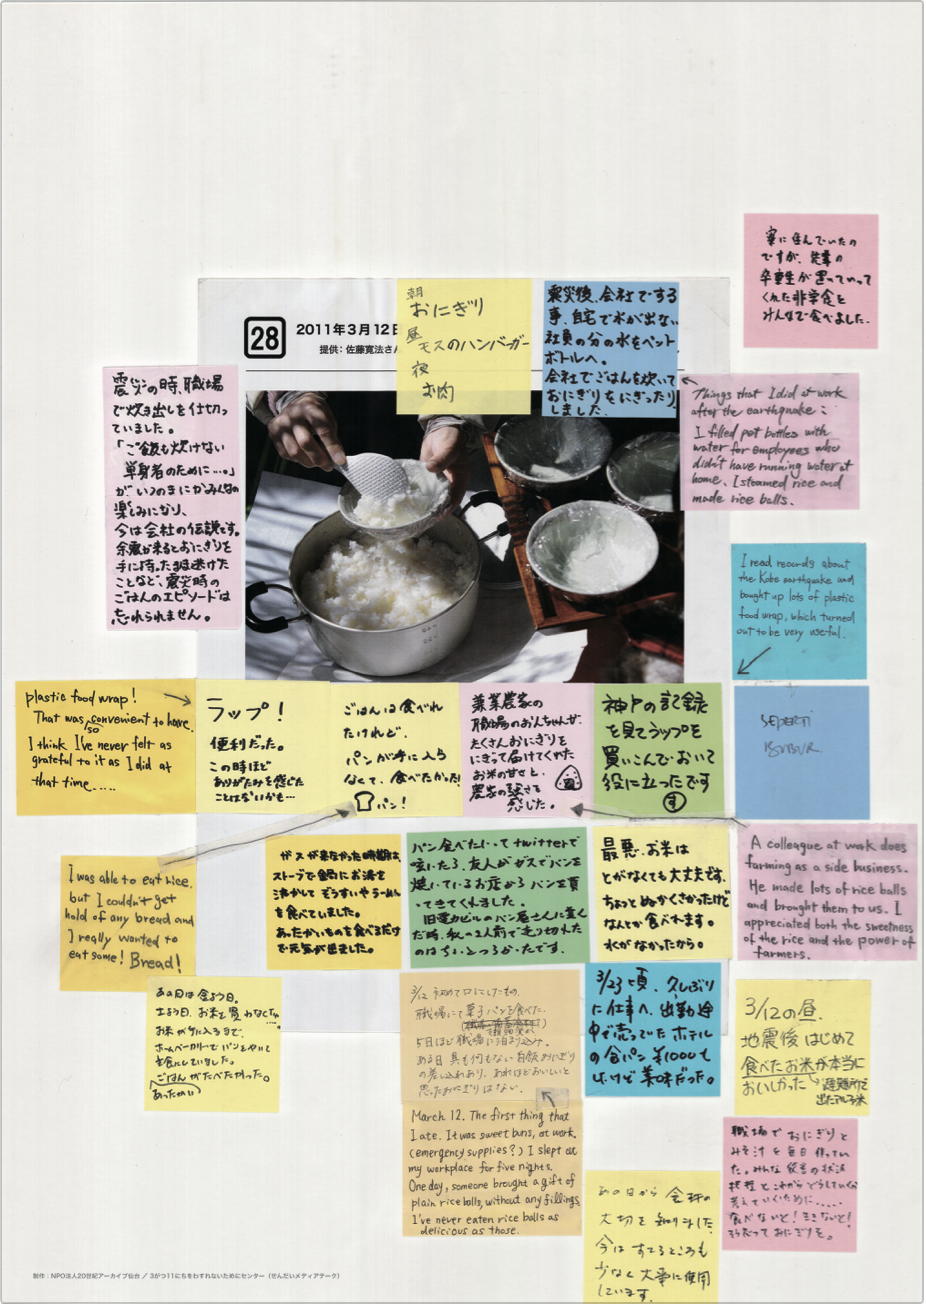 寮に住んでいたの
ですが、
卒業生が置っていって
くれた非常食を
みんなで食べました.
28
2011年3月12日
提供:佐藤寛法さん
朝
おにぎり
昼
モスのハンバーガー
夜
お肉
震災後、会社でする
事、自宅で水が出ない
社員の分の水をペット
ボトルへ。
会社でごはんを炊いて
おにぎりをにぎったり
しました.
震災の時、職場
で炊き出しを仕切っ
ていました。
「ご飯も炊けない
単身者のために…。」
がいつのまにかみんなの
楽しみになり、
今は会社の伝説です。
余震が来るとおにぎりを
手に持ったまま逃げた
ことなど、震災時の
ごはんのエピソードは
忘れられません。
Things that I did at work
after the earthquake:
I filled pet bottles with
water for employees who
didn't have running water at
home. I steamed rice and
made rice balls.
I read records about
the Kobe earthquake and
bought up lots of plastic
food wrap, which turned
out to be very useful.
plastic food wrap!
That was so convenient to have.
I think I've never felt as
grateful to it as I did at
that time.....
ラップ!
便利だった。
この時ほど
ありがたみを感じた
ことはないかも…
ごはんは食べれ
たけれど、
パンが手に入ら
なくて、食べたかった!
パン!
兼業農家の
職場のおんちゃんが、
たくさんおにぎりを
にぎって届けてくれた
お米の甘さと、
農家の強さを
感じた。
神戸の記録
を見てラップを
買いこんでおいて
役に立ったです
SEPERTI
BUBUR
I was able to eat rice,
but I couldn't get
hold of any bread and
I really wanted to
eat some! Bread!
ガスが来なかった時期は、
ストーブで鍋にお湯を
沸かしてぞうすいやらーめん
を食べていました。
あったかいものを食べるだけ
で元気が出ました。
パン食べたいってtwitterで
呟いたら、友人がガスでパンを
焼いているお店からパンを買
ってきてくれました。
旧電力ビルのパン屋さんに並ん
だ時、私の2人前で売り切れた
のはちょいとつらかったです。
最悪、お米は
とがなくても大丈夫です。
ちょっとぬかくさかったけど
なんとか食べれます。
水がなかったから。
A colleague at work does
farming as a side business.
He made lots of rice balls
and brought them to us. I
appreciated both the sweetness
of the rice and the power of
farmers.
あの日は金よう日。
土よう日、お米を買わなくちゃ…
お米が手に入るまで、
ホームベーカリーでパンをやいて
主食にしていました。
ごはんがたべたかった。
あったかい
3/12 初めて口にしたもの.
職場にて菓子パンを食べた.
5日ほど職場に泊まり込み.
ある日 具も何もない白飯おにぎり
の差し入れあり、あれほどおいしいと
思ったおにぎりはない.
3/23頃、久しぶり
に仕事へ、出勤途
中で売っていたホテル
の食パン ¥1000も
したけど美味だった。
3/12の昼.
地震後はじめて
食べたお米が本当に
おいしかった
避難所で
出たアルファ米
March 12. The first thing that
I ate. It was sweet buns, at work.
(emergency supplies?) I slept at
my workplace for five nights.
One day, someone brought a gift of
plain rice balls, without any fillings.
I've never eaten rice balls as
delicious as those.
職場でおにぎりと
みそ汁を毎日作ってい
た。みんな災害の状況
把握とこれからどうしていくか
考えていくために.....
食べないと!生きないと!
そうだっておにぎりを。
あの日から 食料の
大切を知りました
今は すてるところも
少なく大事に使用
しています.
制作:NPO法人20世紀アーカイブ仙台 / 3がつ11にちをわすれないためにセンター(せんだいメディアテーク)